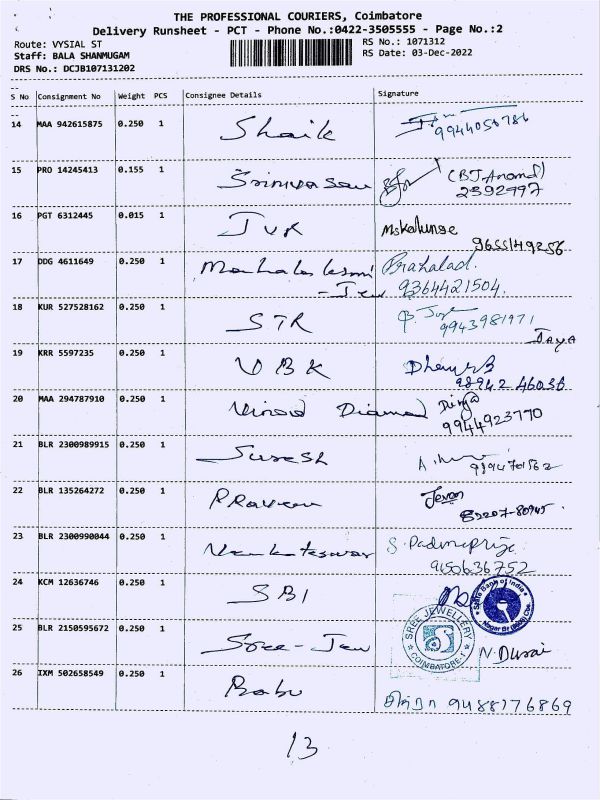 THE PROFESSIONAL COURIERS, Coimbatore
Delivery Runsheet - PCT - Phone No.:0422-3505555 - Page No.:2
Route: VYSIAL ST
RS No.: 1071312
Staff: BALA SHANMUGAM
RS Date: 03-Dec-2022
DRS No.: DCJB107131202
S No Consignment No Weight PCS Consignee Details Signature
14 MAA 942615875 0.250 1 Shaik
9944056786
15 PRO 14245413 0.155 1 Srinivasan (BJ.Anand)
2392997
16 PGT 6312445 0.015 1 JVR
9655149256
17 DDG 4611649 0.250 1 Mahalakshmi Prahalad.
- Jew 9364421504
18 KUR 527528162 0.250 1 STR
9943981971
JAYA
19 KRR 5597235 0.250 1 VBK
98942 46036
20 MAA 294787910 0.250 1 Vinod Diamond Divya
9944923770
21 BLR 2300989915 0.250 1 Suresh
9894701562
22 BLR 135264272 0.250 1 Praveen Jevan
23 BLR 2300990044 0.250 1 Venkateswar S. Padmapriya
9150636752
24 KCM 12636746 0.250 1 SBI
State Bank of India
SREE JEWELLERY
COIMBATORE-1
25 BLR 2150595672 0.250 1 Sree - Jew N. Durai
26 IXM 502658549 0.250 1 Babu
9488176869
13